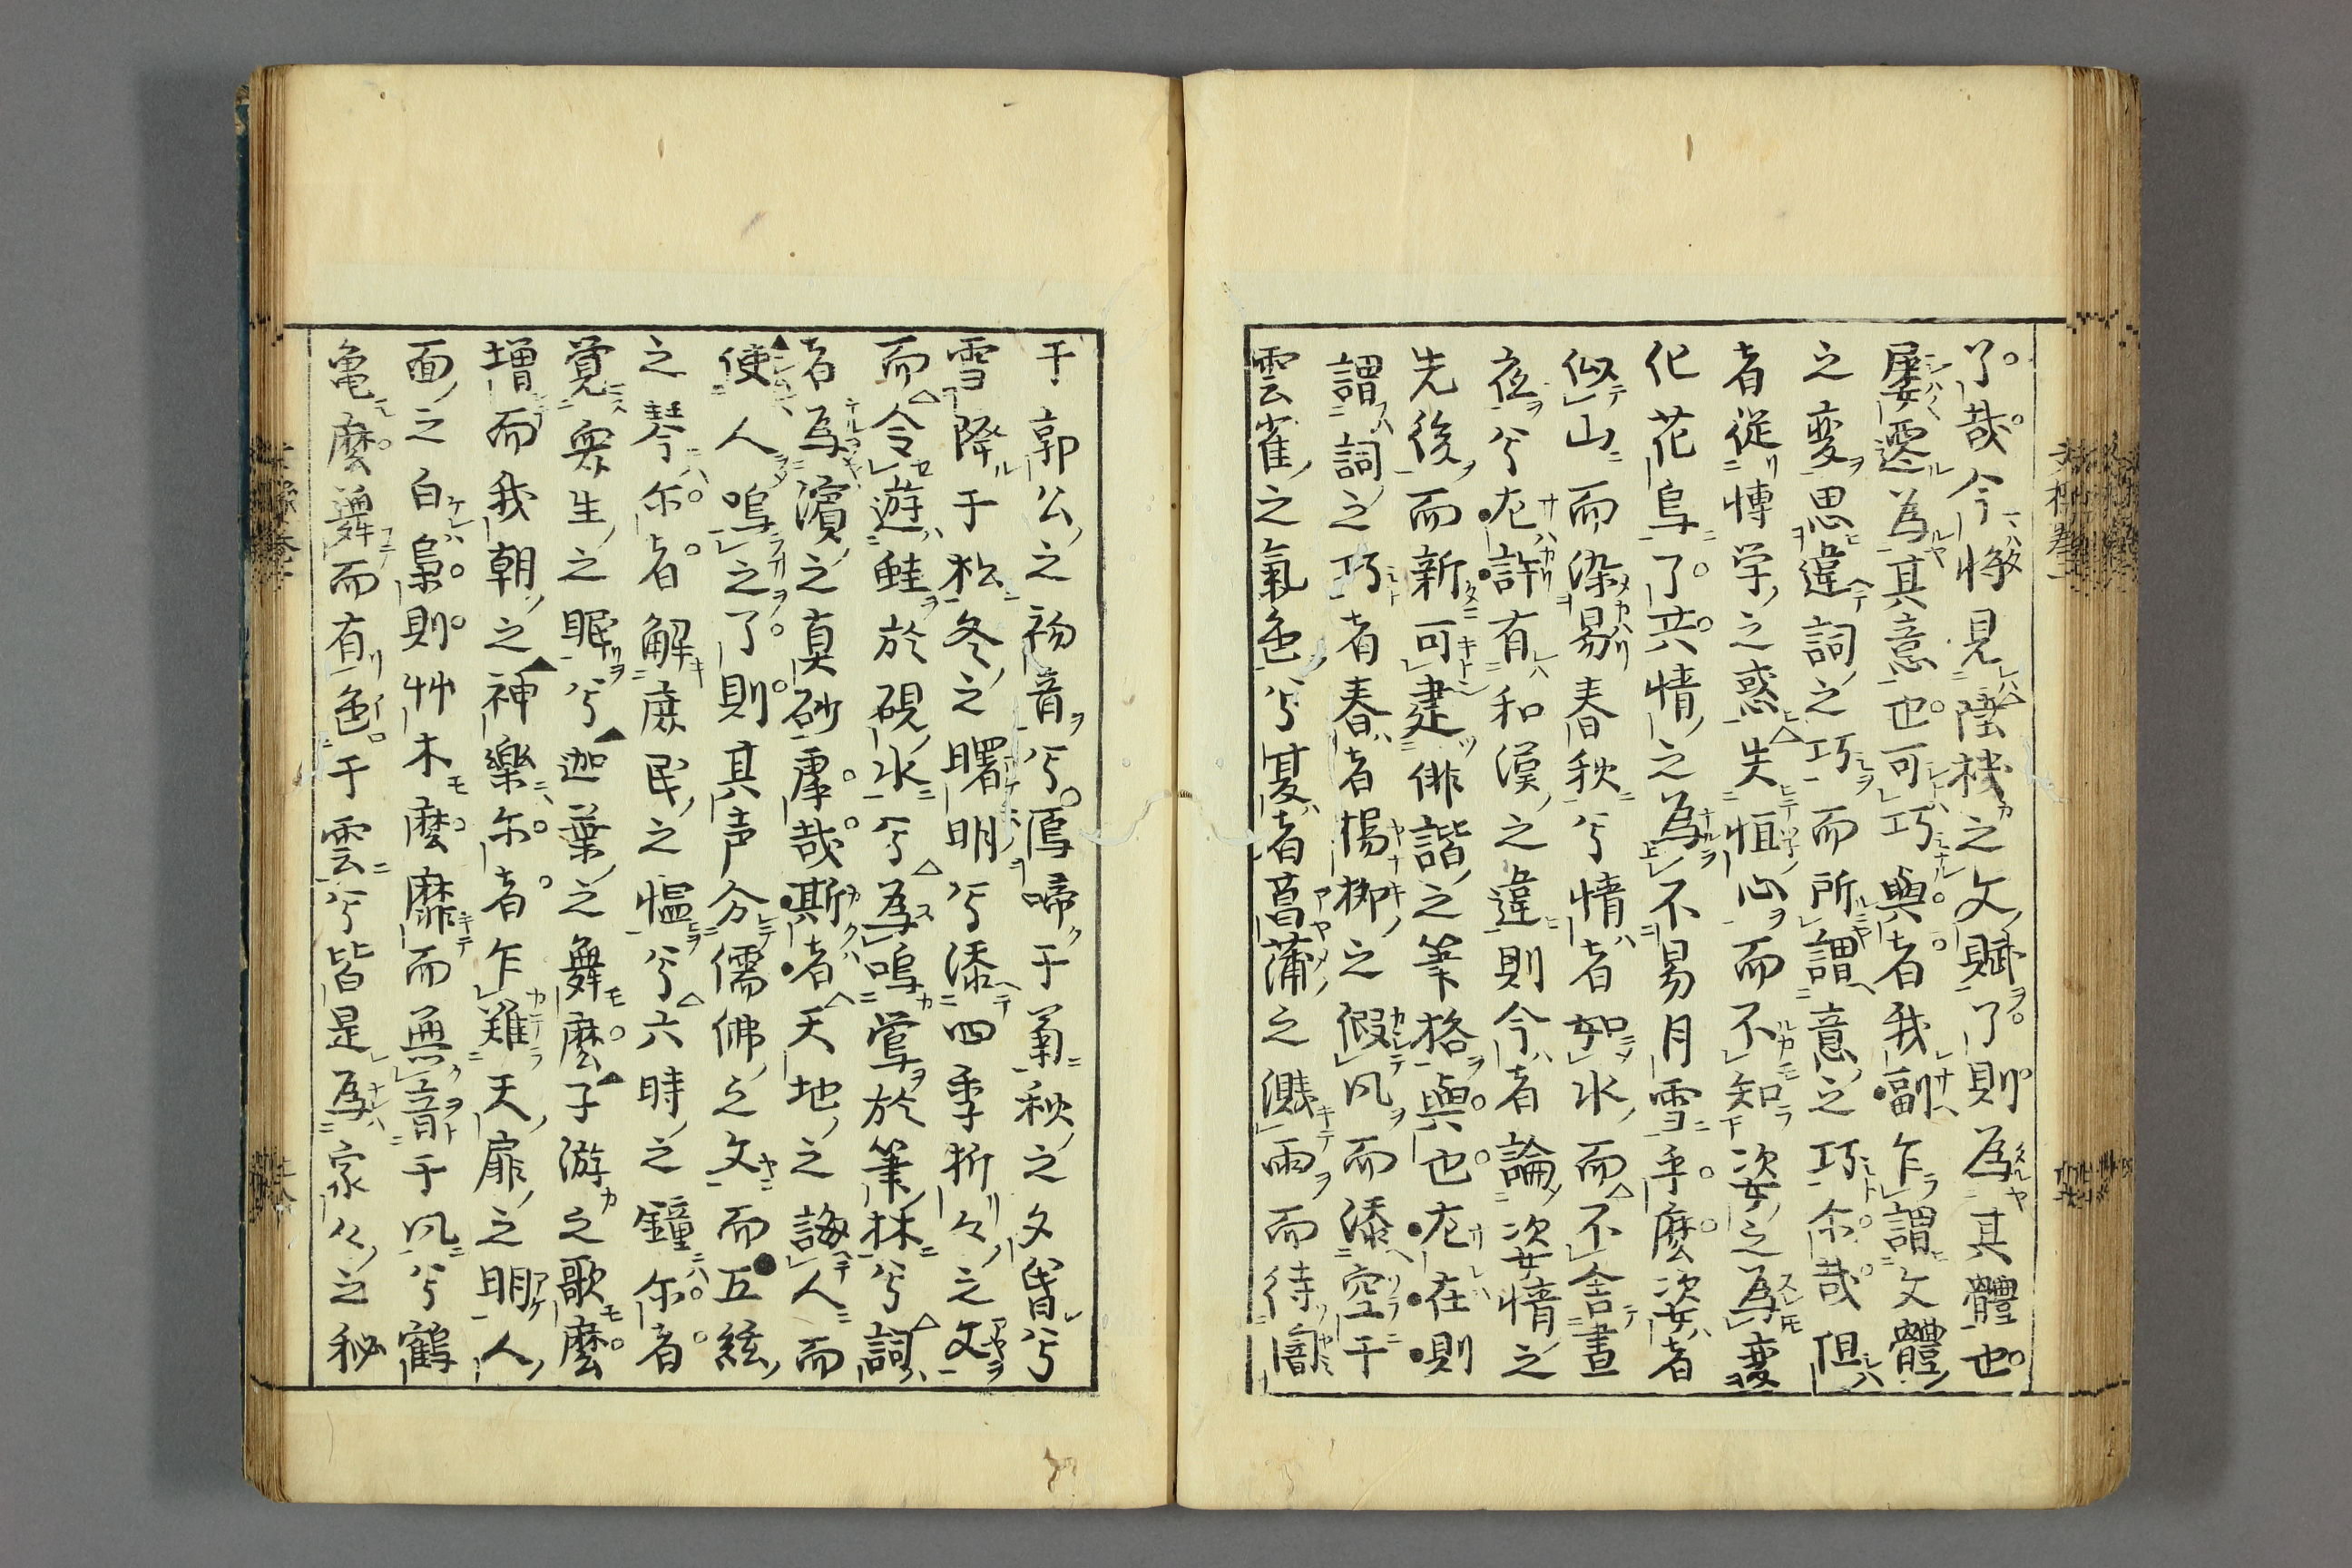 了哉今将見陸機之文賦了則為其體也
屡遷為其意也可巧與者我副乍謂文體
之変思違詞之巧而所謂意之巧尓哉但
者従博学之惑失恒心而不知姿之為変
化花鳥了共情之為不易月雪乎麼姿者
似山而染易春秋兮情者如水而不舎晝
夜兮左許有和漢之違則今者論姿情之
先後而新可建俳諧之筆格與也左在則
謂詞之巧者春者楊柳之假風而添空于
雲雀之氣色兮夏者菖蒲之濺雨而待闇
于郭公之初音兮雁啼于菊秋之夕昏兮
雪降于松冬之曙明兮添四季折々之文
而令遊蛙於硯水兮為鳴鶯於筆林兮詞
者為濱之真砂庫哉斯者天地之誨人而
使人鳴之了則其声分儒佛之文而五絃
之琴尓者解庶民之慍兮六時之鐘尓者
覚衆生之眠兮迦葉之舞麼子游之歌麼
増而我朝之神樂尓者乍難天扉之明人
面之白梟則艸木麼靡而無音于風兮鶴
亀麼舞而有色于雲兮皆是為家々之秘